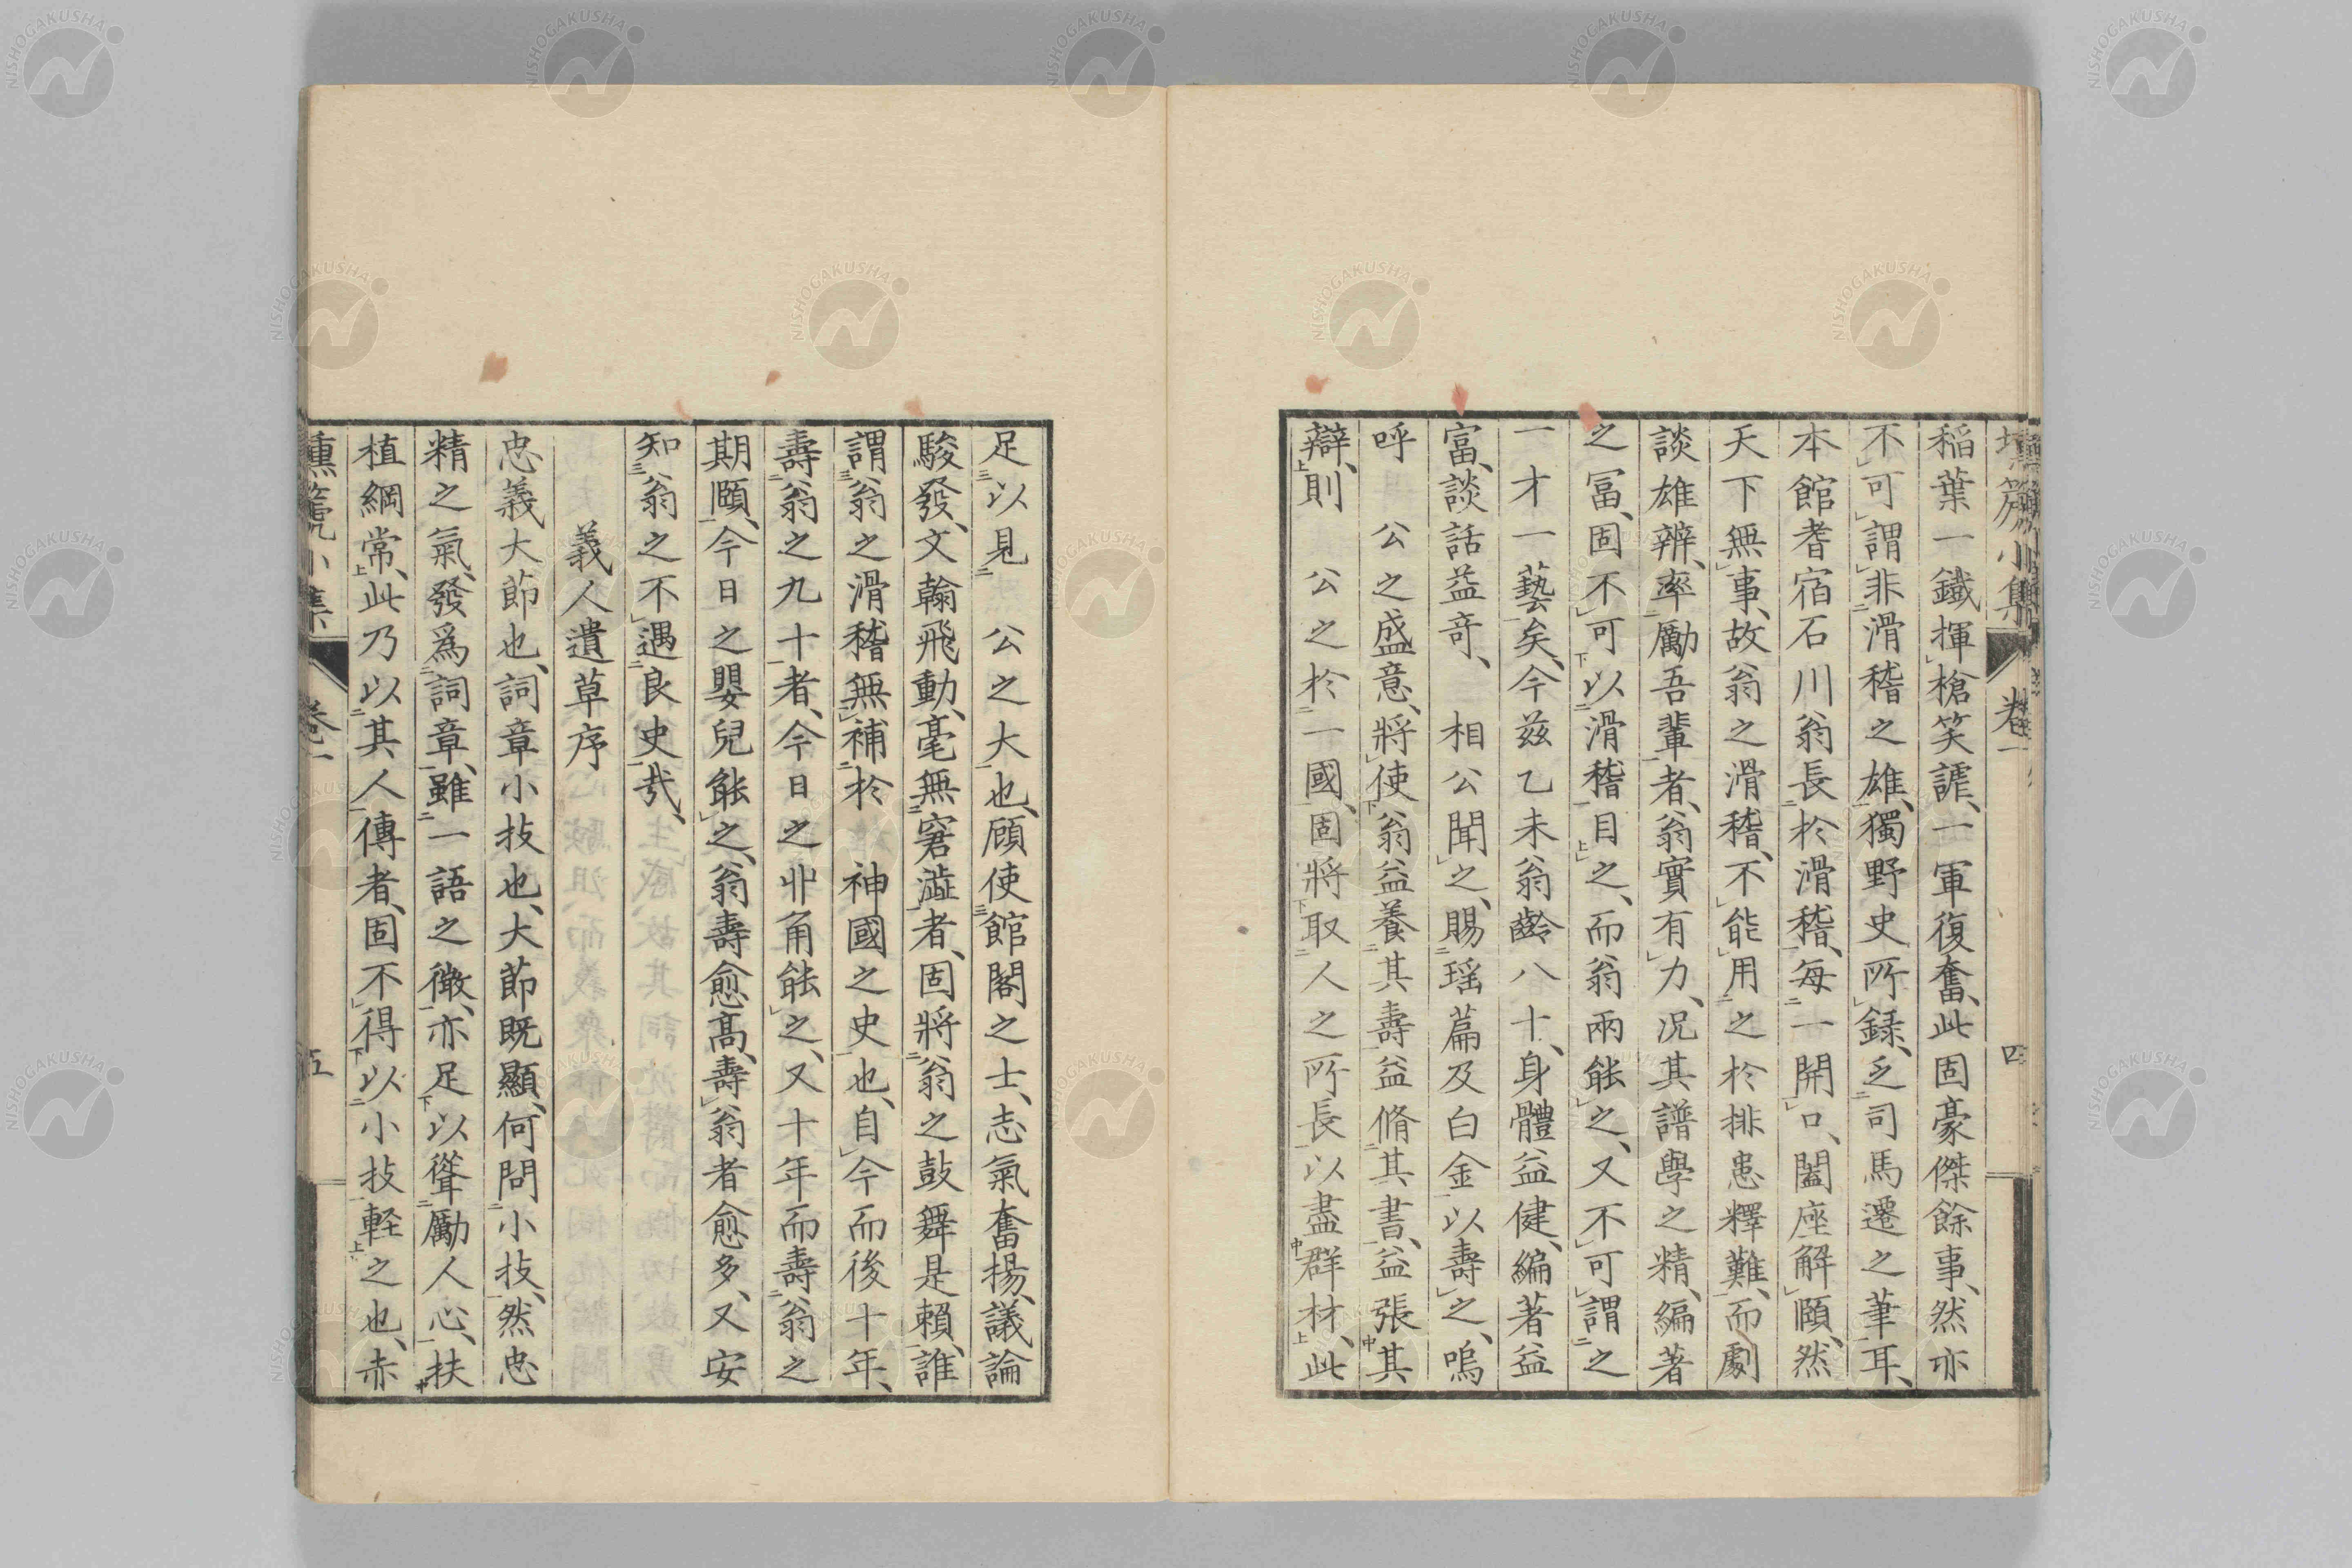 稲葉一鐵揮槍笑謔、一軍復奮、此固豪傑餘事、然亦
不可謂非滑稽之雄、獨野史所録、乏司馬遷之筆耳、
本館耆宿石川翁長於滑稽、毎一開口、闔座解頤、然
天下無事、故翁之滑稽、不能用之於排患釋難、而劇
談雄辨、率勵吾輩者、翁實有力、況其譜學之精、編著
之冨、固不可以滑稽目之、而翁兩能之、又不可謂之
一才一藝矣、今茲乙未翁齡八十、身體益健、編著益
富、談話益竒、相公聞之、賜瑶篇及白金以壽之、嗚
呼公之盛意、將使翁益養其壽益脩其書、益張其
辯、則公之於一國、固將取人之所長以盡群材、此
足以見公之大也、顧使館閣之士、志氣奮揚、議論
駿發、文翰飛動、毫無窘澁者、固將翁之鼓舞是頼、誰
謂翁之滑稽無補於神國之史也、自今而後十年、
壽翁之九十者、今日之丱角能之、又十年而壽翁之
期頤、今日之嬰兒能之、翁壽愈髙、壽翁者愈多、又安
知翁之不遇良史哉、
義人遺草序
忠義大節也、詞章小技也、大節既顯、何問小技、然忠
精之氣、發爲詞章、雖一語之微、亦足以聳勵人心、扶
植綱常、此乃以其人傳者、固不得以小技軽之也、赤